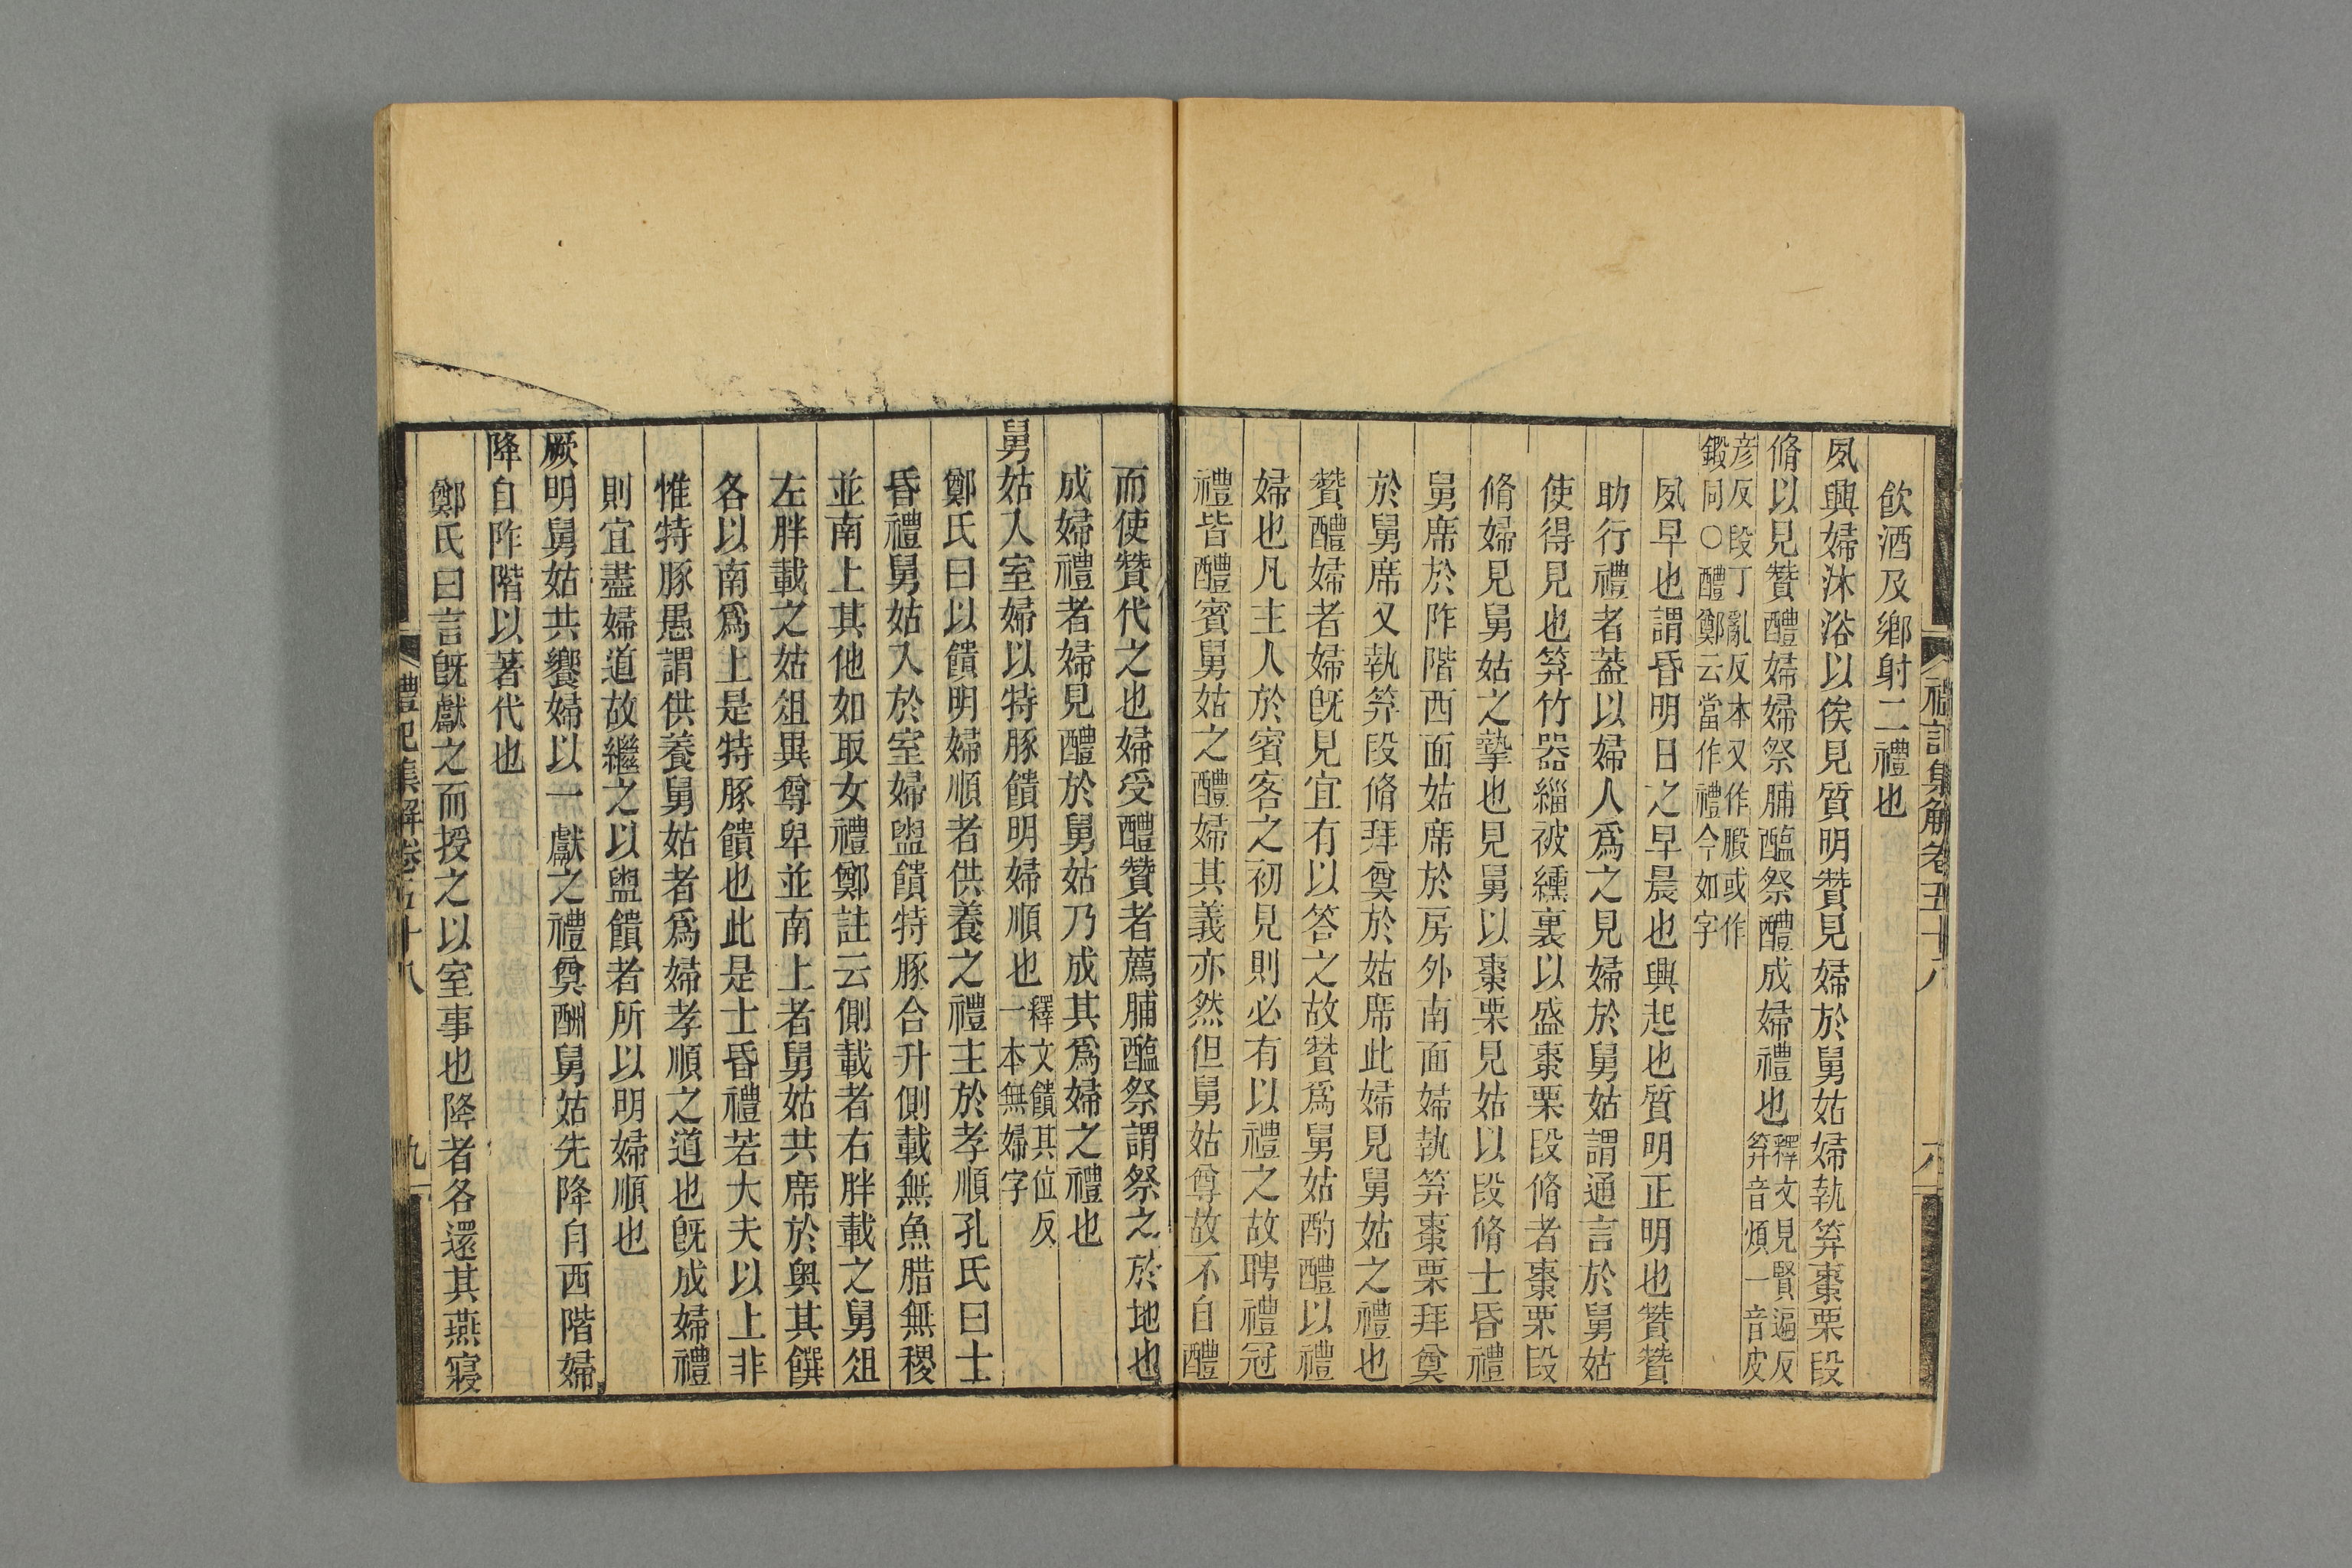 禮記集解卷五十八
八
飲酒及鄉射二禮也
夙興婦沐浴以俟見質明贊見婦於舅姑婦執笲棗栗段
脩以見贊醴婦婦祭脯醢祭醴成婦禮也釋文見賢遍反
笲音煩一音皮
彦反段丁亂反本又作腶或作
鍛同○醴鄭云當作禮今如字
夙早也謂昏明日之早晨也興起也質明正明也贊贊
助行禮者葢以婦人爲之見婦於舅姑謂通言於舅姑
使得見也笲竹器緇被纁裏以盛棗栗段脩者棗栗段
脩婦見舅姑之摯也見舅以棗栗見姑以段脩士昏禮
舅席於阼階西面姑席於房外南面婦執笲棗栗拜奠
於舅席又執笲段脩拜奠於姑席此婦見舅姑之禮也
贊醴婦者婦旣見宜有以答之故贊爲舅姑酌醴以禮
婦也凡主人於賓客之初見則必有以禮之故聘禮冠
禮皆醴賓舅姑之醴婦其義亦然但舅姑尊故不自醴
而使贊代之也婦受醴贊者薦脯醢祭謂祭之於地也
成婦禮者婦見醴於舅姑乃成其爲婦之禮也
舅姑入室婦以特豚饋明婦順也釋文饋其位反
一本無婦字
鄭氏曰以饋明婦順者供養之禮主於孝順孔氏曰士
昏禮舅姑入於室婦盥饋特豚合升側載無魚腊無稷
並南上其他如取女禮鄭註云側載者右胖載之舅俎
左胖載之姑俎異尊卑並南上者舅姑共席於奥其饌
各以南爲上是特豚饋也此是士昏禮若大夫以上非
惟特豚愚謂供養舅姑者爲婦孝順之道也旣成婦禮
則宜盡婦道故繼之以盥饋者所以明婦順也
厥明舅姑共饗婦以一獻之禮奠酬舅姑先降自西階婦
降自阼階以著代也
鄭氏曰言旣獻之而授之以室事也降者各還其燕寢
禮記集解卷五十八
九